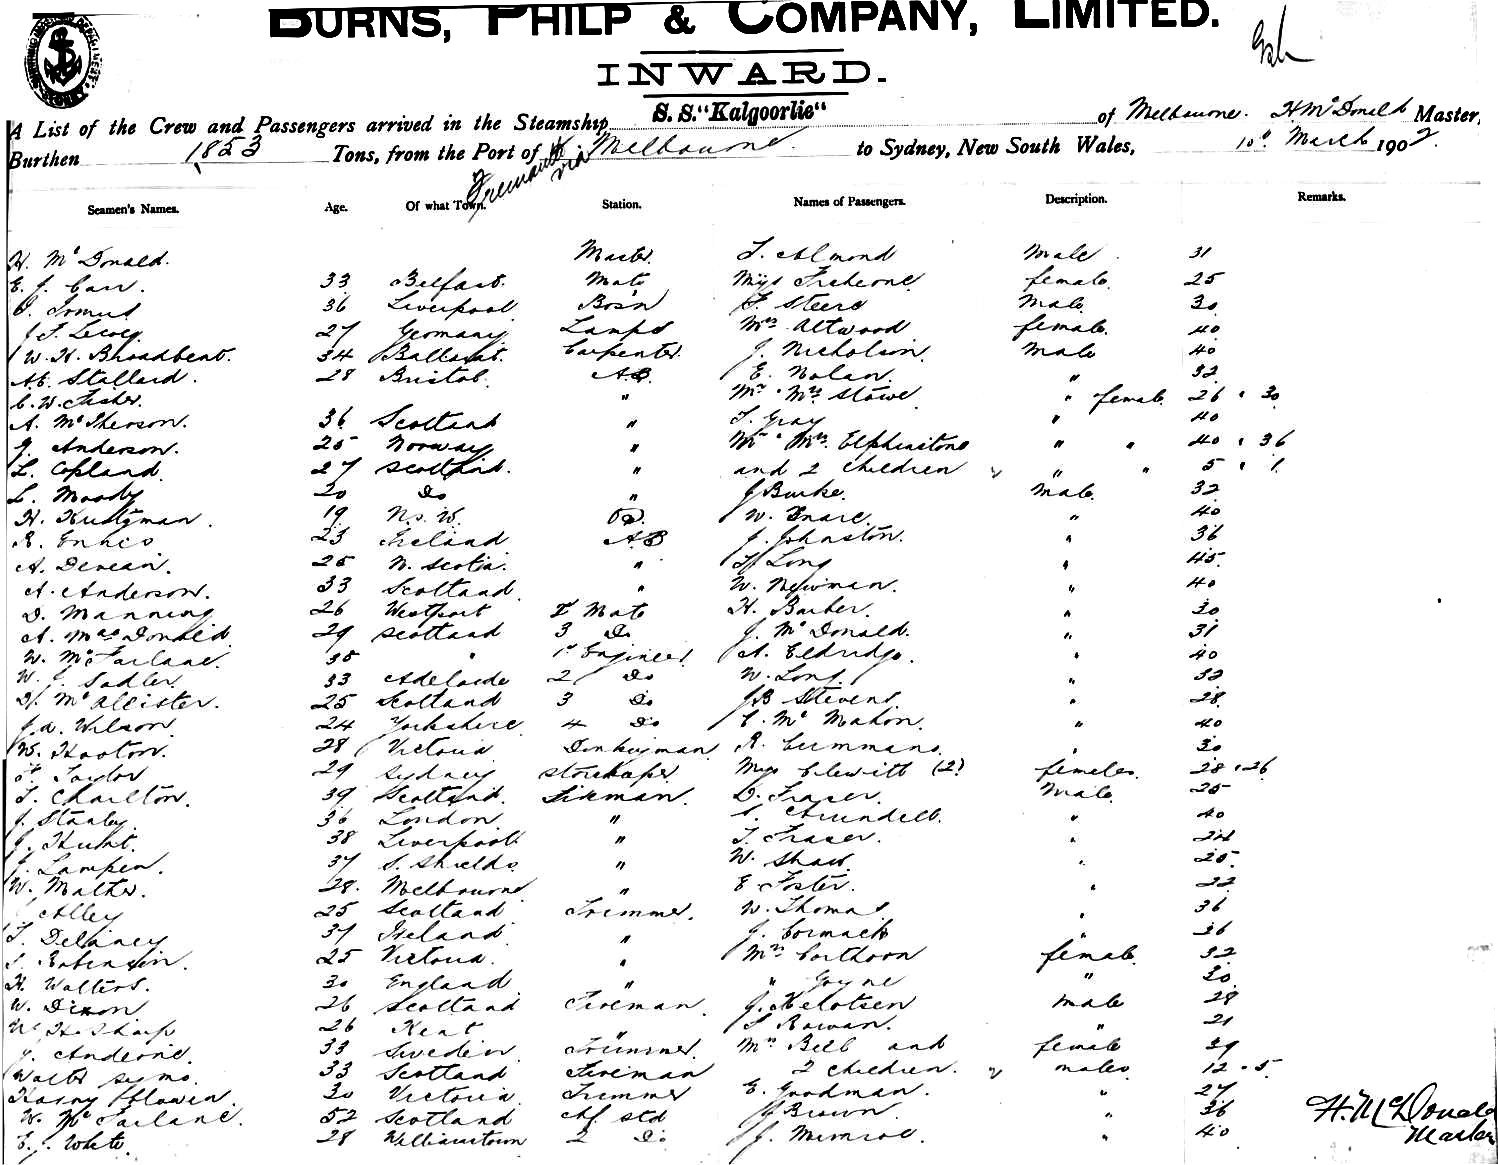 BURNS, PHILP & COMPANY, LIMITED.
INWARD.
A List of the Crew and Passengers arrived in the Steamship S. S. "Kalgoorlie" of Melbourne. H McDonald Master,
Burthen 1853 Tons, from the Port of Fremantle via Melbourne to Sydney, New South Wales, 10th March 1902.
Seamen's Names. Age. Of what Town. Station. Names of Passengers. Description. Remarks.
H. McDonald. Master. T. Almond Male 31
E. J. Carr. 33 Belfast. Mate Miss female 25
36 Liverpool Bosn F. Steere Male 30
J. F. Lecocq 27 Germany Lamps Mrs Attwood female 40
W. H. Broadbent. 34 Ballarat. Carpenter. J. Nicholson. Male 40
Stallard. 28 Bristol. AB. E. Nolan. " 32
C. W. Fisher. " Mr & Mrs Stowe " female 26 " 30
A. McPherson. 36 Scotland " T. Gray " 40
J. Anderson. 25 Norway " Mr & Mrs Elphinstone " " 40 " 36
L. Copland. 27 Scotland. " and 2 children " " " 5 " 1
L. Moody 20 Do " J Burke. Male. 32
H. 19 N.S.W. OS. W. Snare. " 40
R. Ennes 23 Ireland AB J. Johnston. " 36
A. 25 N. Scotia. " Long " 45
A. Anderson. 33 Scotland. " W. Newman. " 40
D. Manning 26 Westport 2 Mate H. Barber. " 30
A. MacDonald 29 Scotland 3 Do J. McDonald. " 31
W. McFarlane. 35 " 1st Engineer A. Eldridge. " 40
W. J. Sadler. 33 Adelaide 2 Do W. Long. " 32
McAllister. 25 Scotland 3 Do J B Stevens. " 28
J. A. Wilson. 24 Yorkshire 4 Do C. McMahon. " 40
W. Hooton. 28 Victoria Donkeyman R. Cummans. " 30
Taylor 29 Sydney Storekeeper Misses Clewitt (2) females. 28 " 26
T. Charlton. 39 Scotland. Fireman. D. Fraser. Male. 25
J. Stanley 36 London " Arundell. " 40
J. Hunt. 38 Liverpool. " T. Fraser. " 24
J. Lampen. 37 S. Shields " W. Shaw " 25
W. Mather. 28. Melbourne " E Foster. " 22
Alley 25 Scotland Trimmer. W. Thomas " 36
T. Delaney 37 Ireland " J. Cormack " 36
Robinson. 25 Victoria. " Mrs Corthoon female. 32
H. Walters. 30 England " " Goyne " 30
W. Dixon 26 Scotland Fireman. J. Male 28
W. H. Sharp 26 Kent " Rowan. " 21
J. 33 Sweden Trimmer. Mrs Bell and female 39
Walter Syms. 33 Scotland Fireman 2 children. " males. 12 " 5
Harry 30 Victoria. Trimmer E. Goodman. " 27
W. McFarlane. 52 Scotland Chf Std J Brown. " 36
E. J. White. 28 Williamstown 2 Do J. Munroe. " 40
H. McDonald
Master